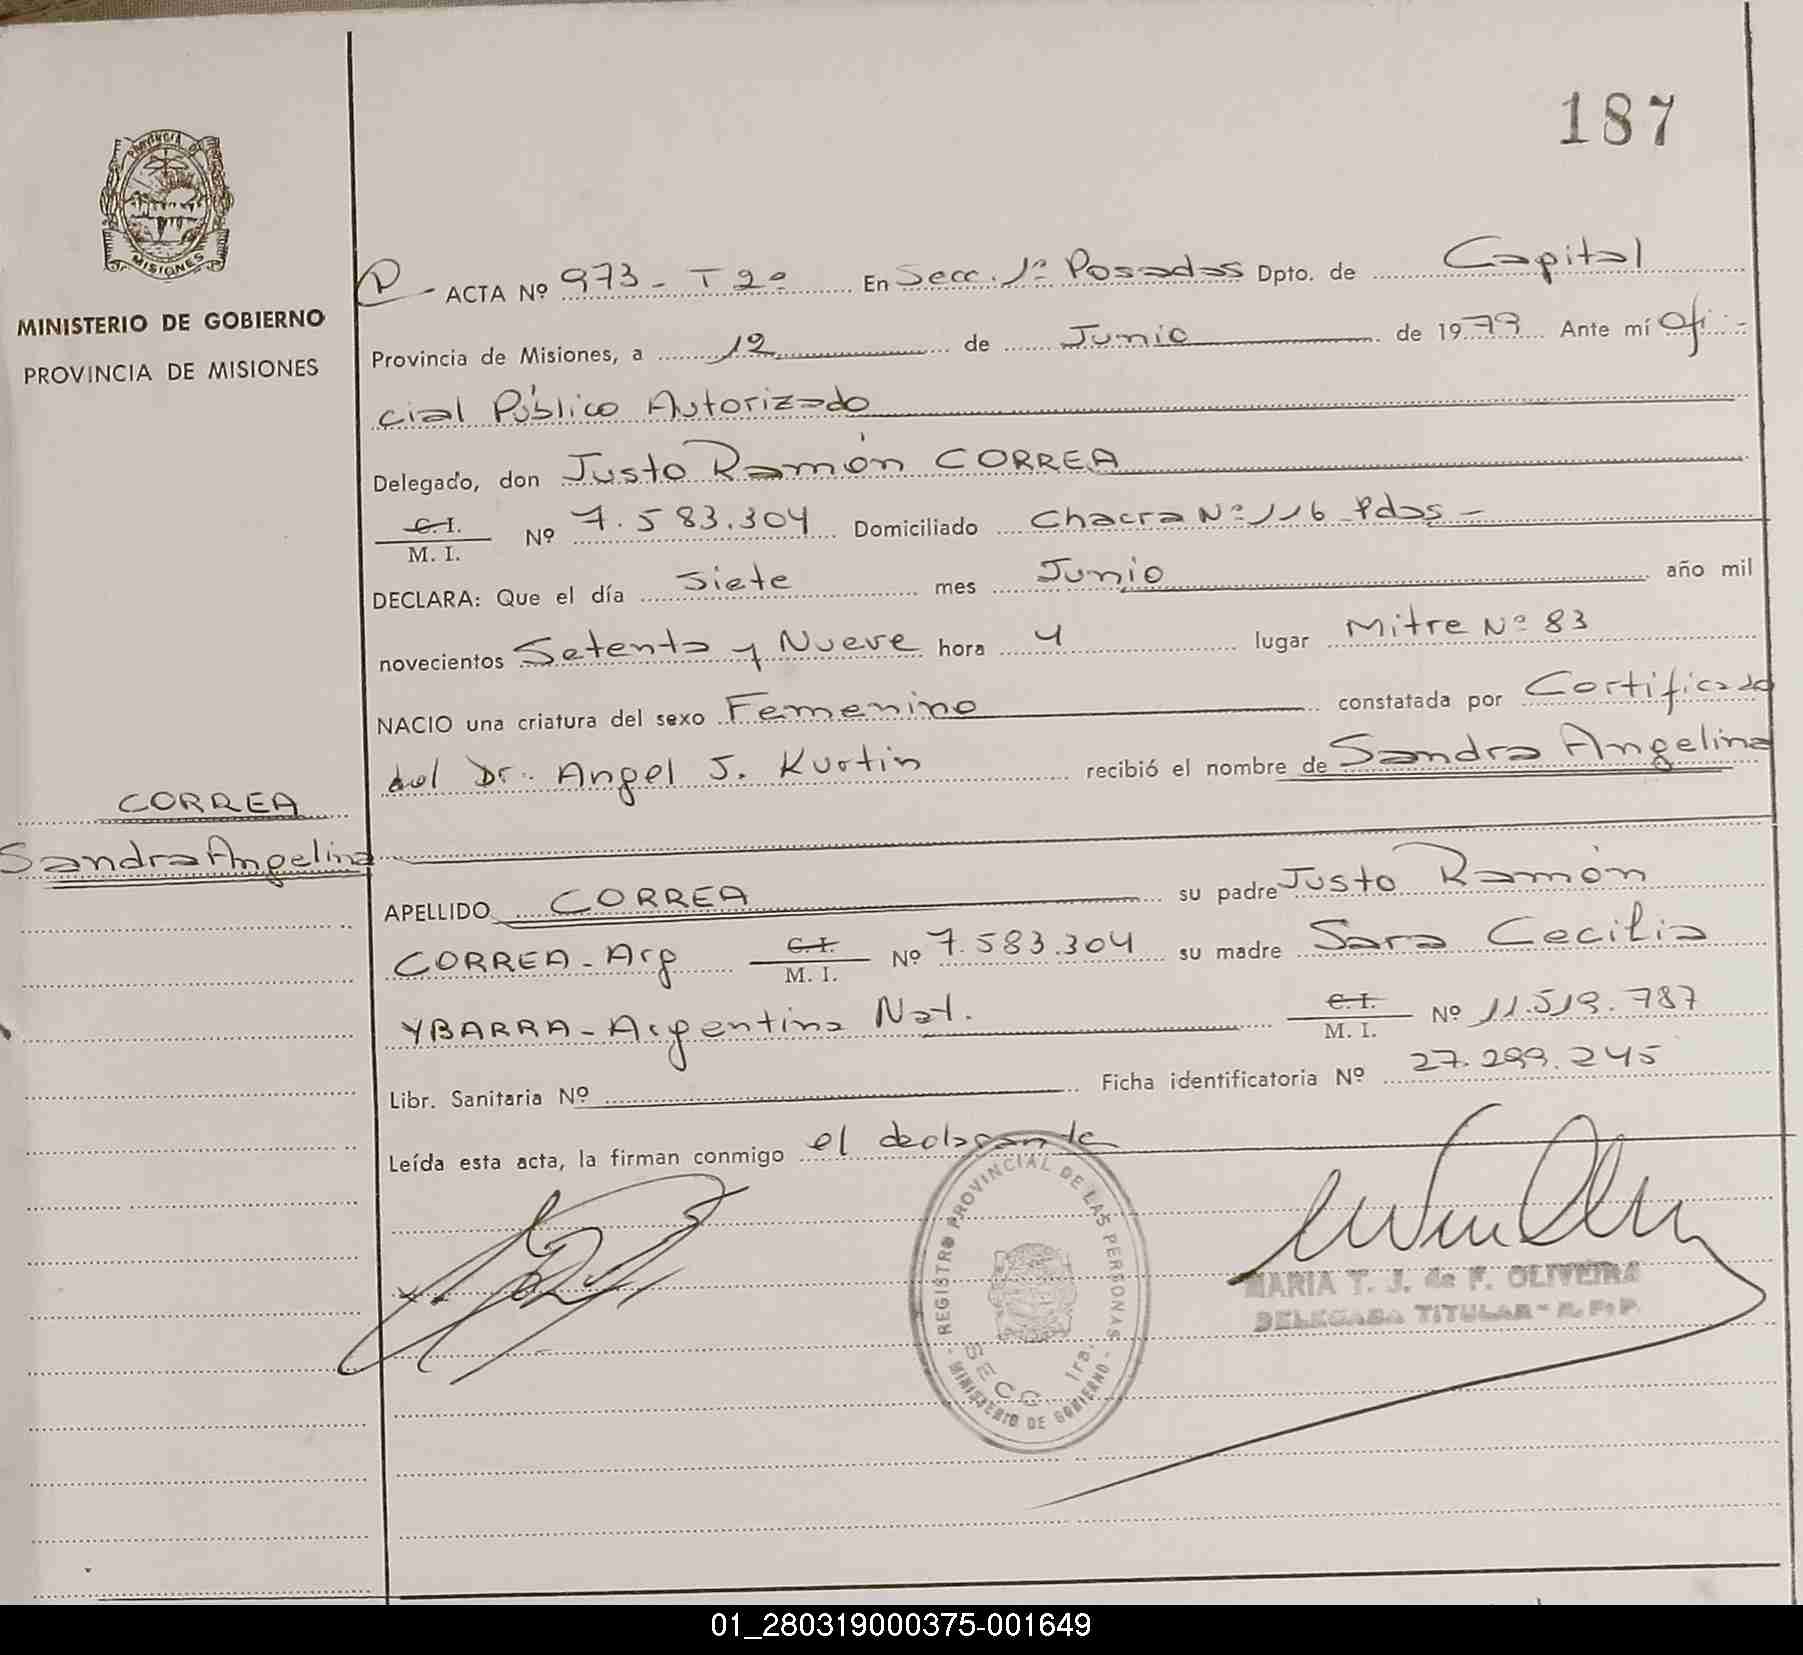 187
PROVINCIA DE
MISIONES
MINISTERIO DE GOBIERNO
PROVINCIA DE MISIONES
ACTA Nº 973 - T 2º En Secc. 1ª Posadas Dpto. de Capital
Provincia de Misiones, a 12 de Junio de 1979 Ante mí Ofi-
cial Público Autorizado
Delegado, don Justo Ramón CORREA
C.I.
M. I. Nº 7.583.304 Domiciliado Chacra Nº 116 Pdas -
DECLARA: Que el día Siete mes Junio año mil
novecientos Setenta y Nueve hora 4 lugar Mitre Nº 83
NACIO una criatura del sexo Femenino constatada por Certificado
del Dr. Angel J. Kurtin recibió el nombre de Sandra Angelina
CORREA
Sandra Angelina
APELLIDO CORREA su padre Justo Ramón
CORREA - Arg C.I.
M. I. Nº 7.583.304 su madre Sara Cecilia
YBARRA - Argentina Nat. C.I.
M. I. Nº 11.519.787
Libr. Sanitaria Nº Ficha identificatoria Nº 27.299.245
Leída esta acta, la firman conmigo el declarante
REGISTRO PROVINCIAL DE LAS PERSONAS
SECC. 1ra.
- MINISTERIO DE GOBIERNO -
MARIA T. J. de F. OLIVEIRA
DELEGADA TITULAR - R. P. P.
01_280319000375-001649